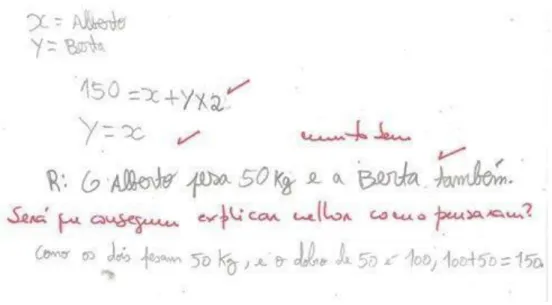 x = Alberto
Y = Berta
150 = x + Y x 2
Y = x
muito bem
R: O Alberto pesa 50 Kg e a Berta também.
Será que conseguem explicar melhor como pensaram?
Como os dois pesam 50 Kg, e o dobro de 50 é 100, 100+50=150